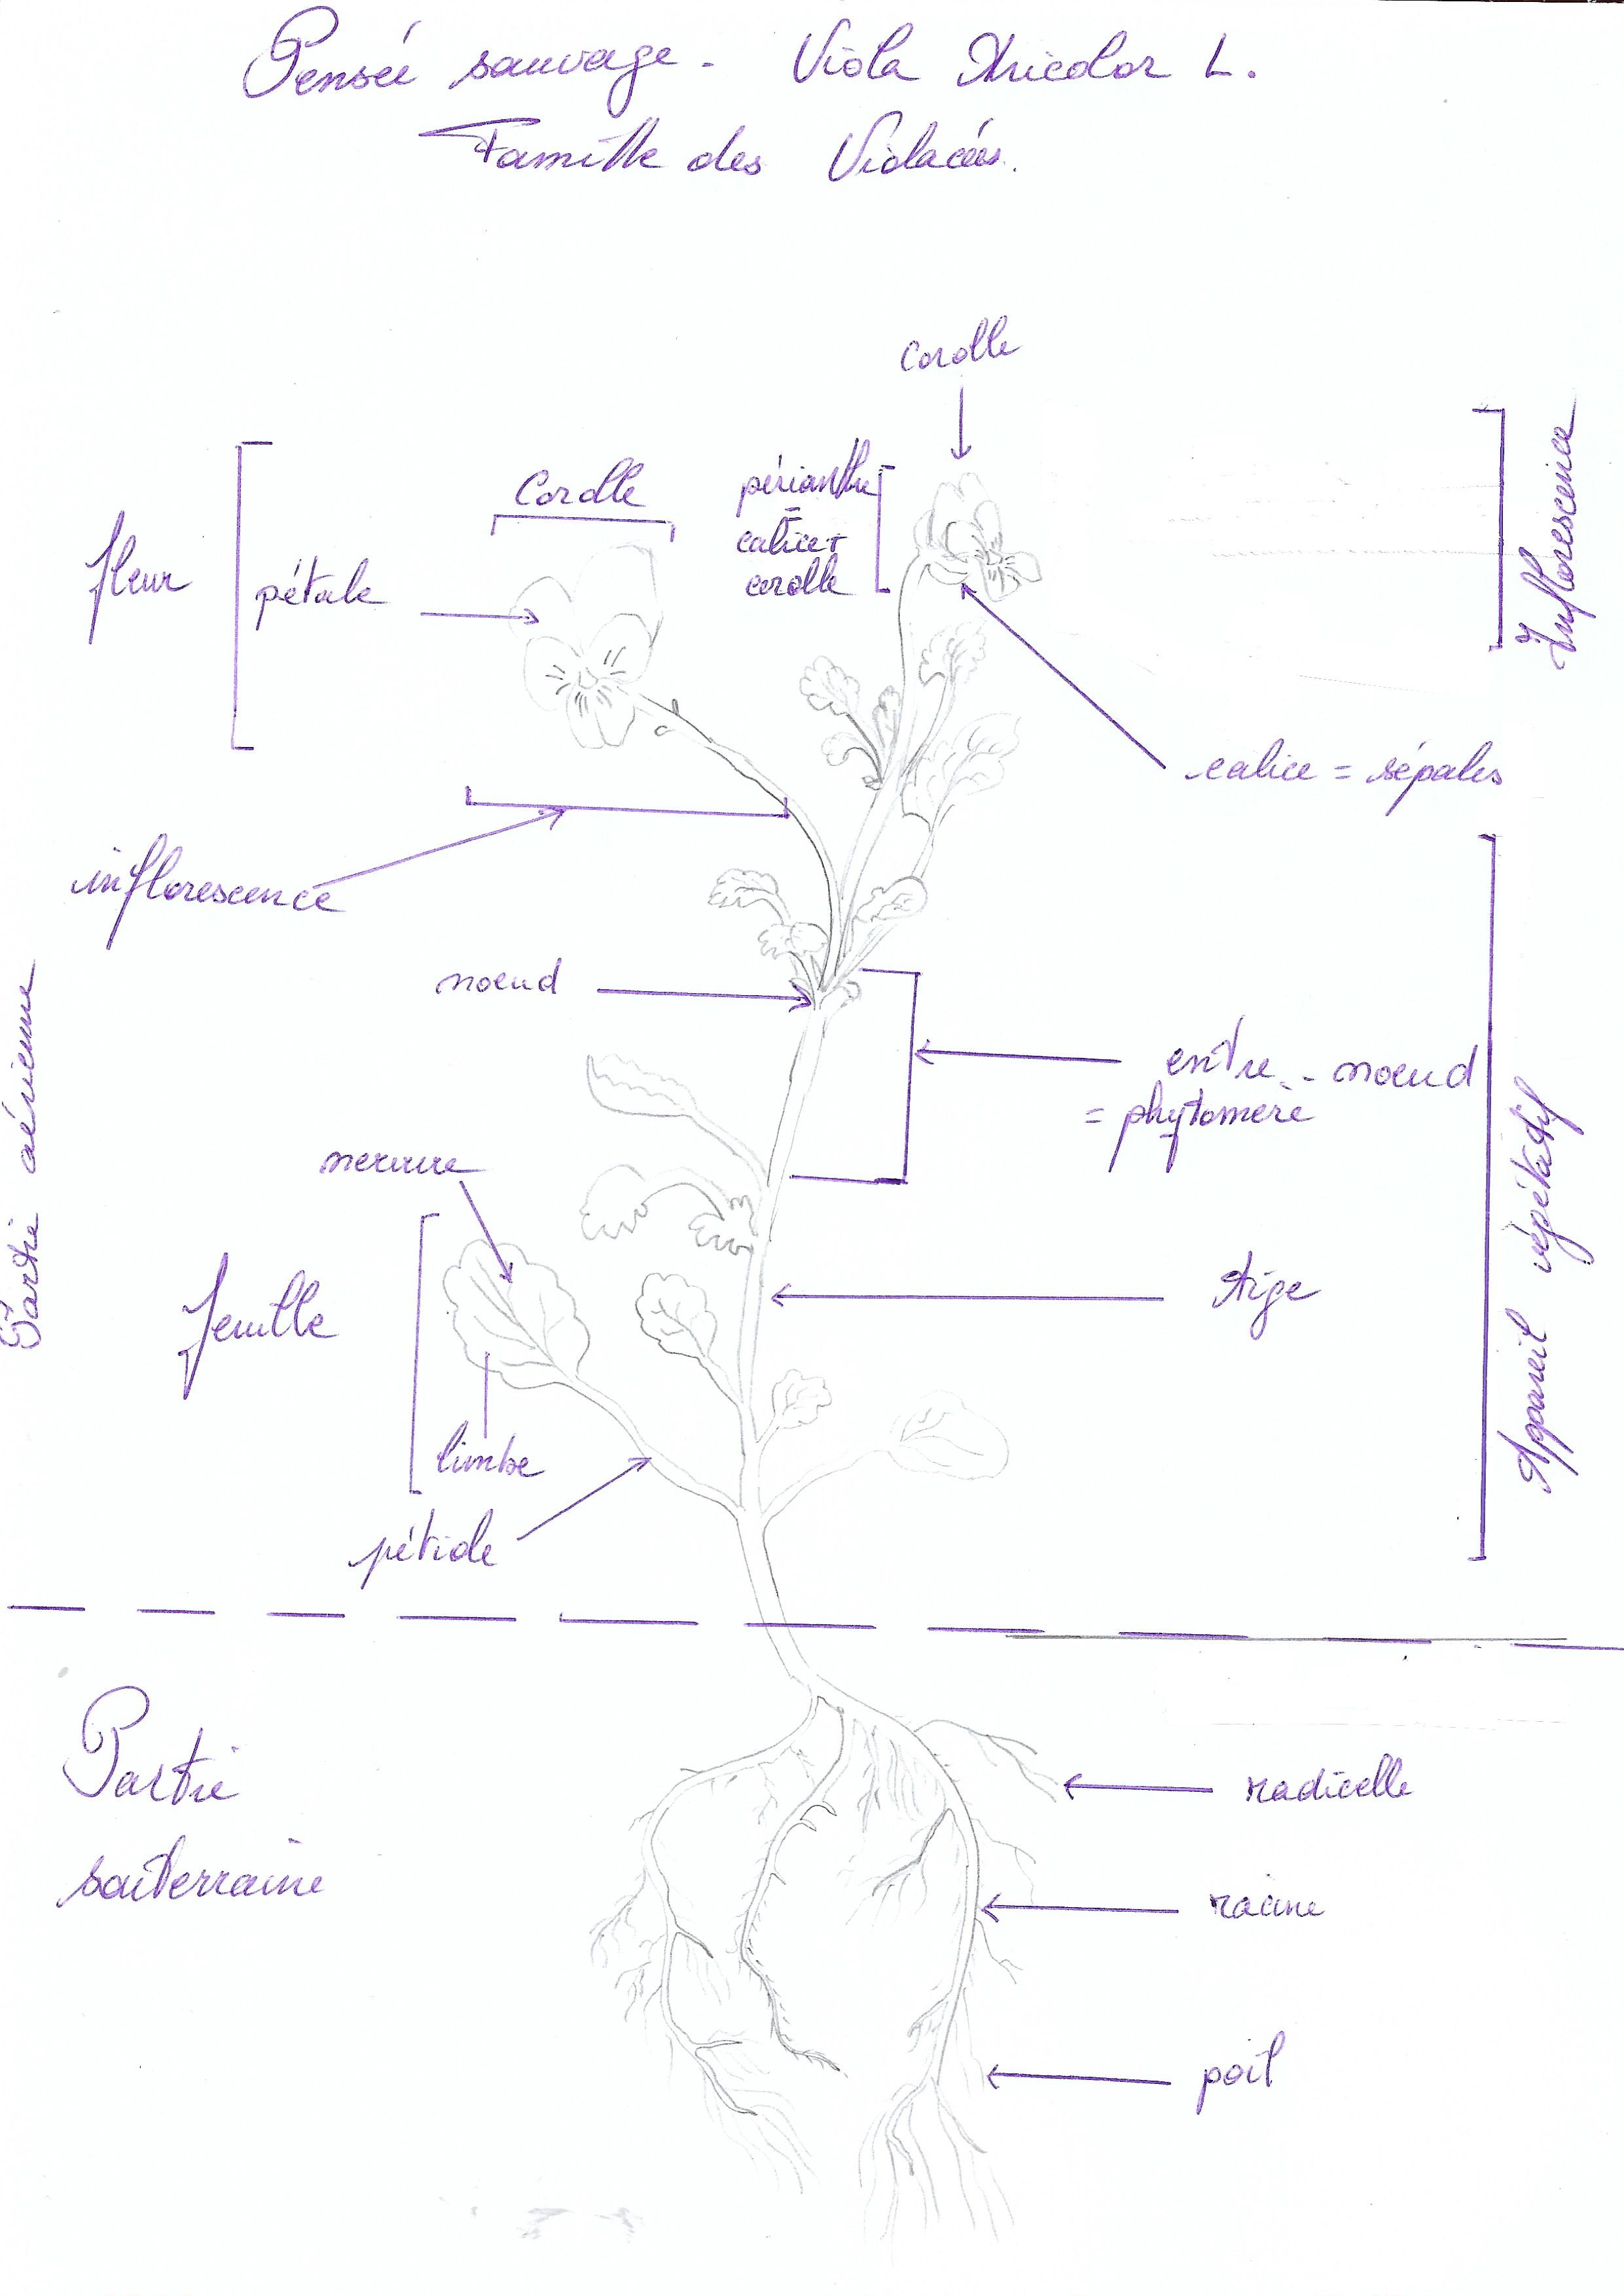 Pensée sauvage - Viola tricolor L.
Famille des Violacées.
corolle
Inflorescence
fleur
Corolle
périanthe
=
calice +
corolle
pétale
calice = sépales
inflorescence
noeud
Partie aérienne
entre - noeud
= phytomère
nervure
Appareil végétatif
feuille
tige
limbe
pétiole
Partie
souterraine
radicelle
racine
poil